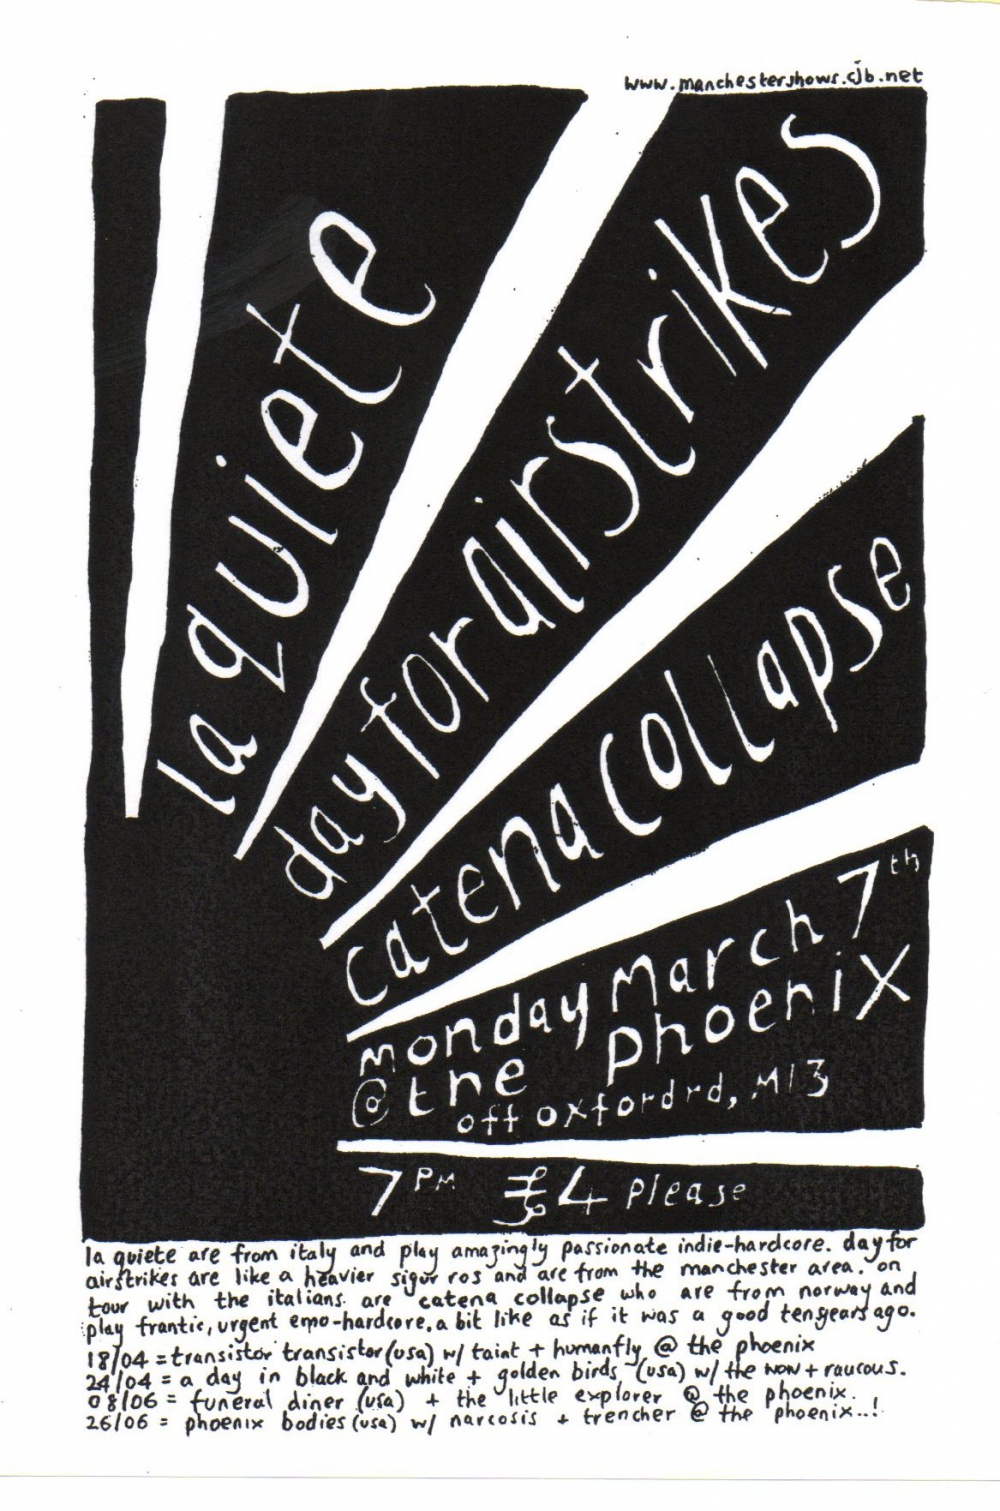 www.manchestershows.cjb.net
la quiete
day for airstrikes
catena collapse
monday march 7th
@ the phoenix
off oxford rd, M13
7PM £4 please
la quiete are from italy and play amazingly passionate indie-hardcore. day for
airstrikes are like a heavier sigur ros and are from the manchester area. on
tour with the italians are catena collapse who are from norway and
play frantic, urgent emo-hardcore, a bit like as if it was a good tenyears ago.
18/04 = transistor transistor (usa) w/ taint + humanfly @ the phoenix
24/04 = a day in black and white + golden birds (usa) w/ the now + raucous.
08/06 = funeral diner (usa) + the little explorer @ the phoenix.
26/06 = phoenix bodies (usa) w/ narcosis + trencher @ the phoenix..!